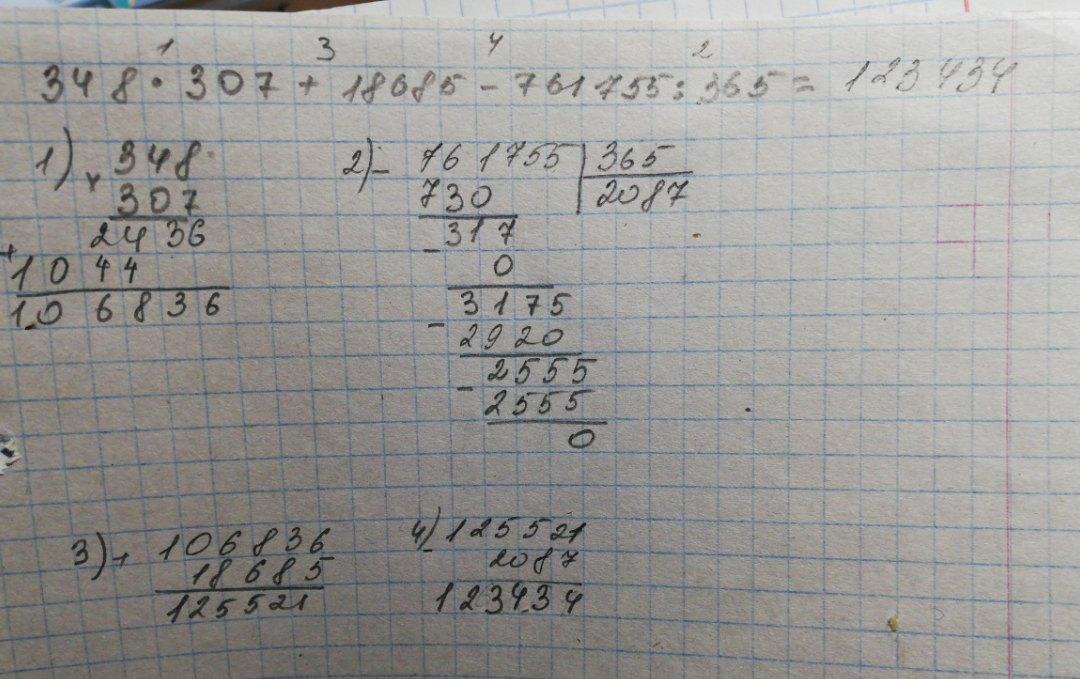 1 3 4 2
348 · 307 + 18685 - 761755 : 365 = 123434
1) × 348
307
+ 2436
1044
106836
2) - 761755 | 365
730 | 2087
- 317
0
- 3175
2920
- 2555
2555
0
3) + 106836
18685
125521
4) - 125521
2087
123434